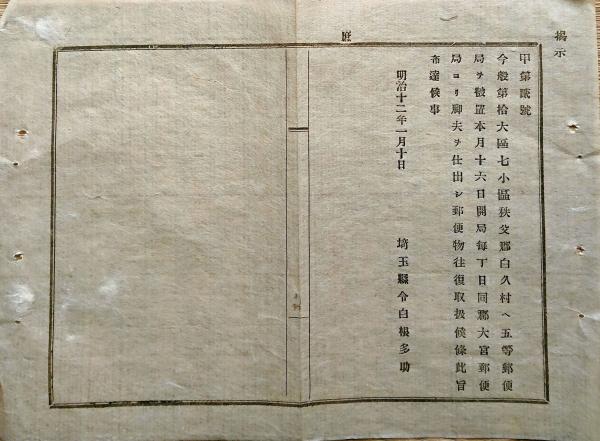 掲示
甲第貳號
今般第拾大區七小區秩父郡白久村ヘ五等郵便
局ヲ設置本月十六日開局毎丁日同郡大宮郵便
局ヨリ脚夫ヲ仕出シ郵便物往復取扱候條此旨
布達候事
明治十二年一月十日
埼玉縣令白根多助